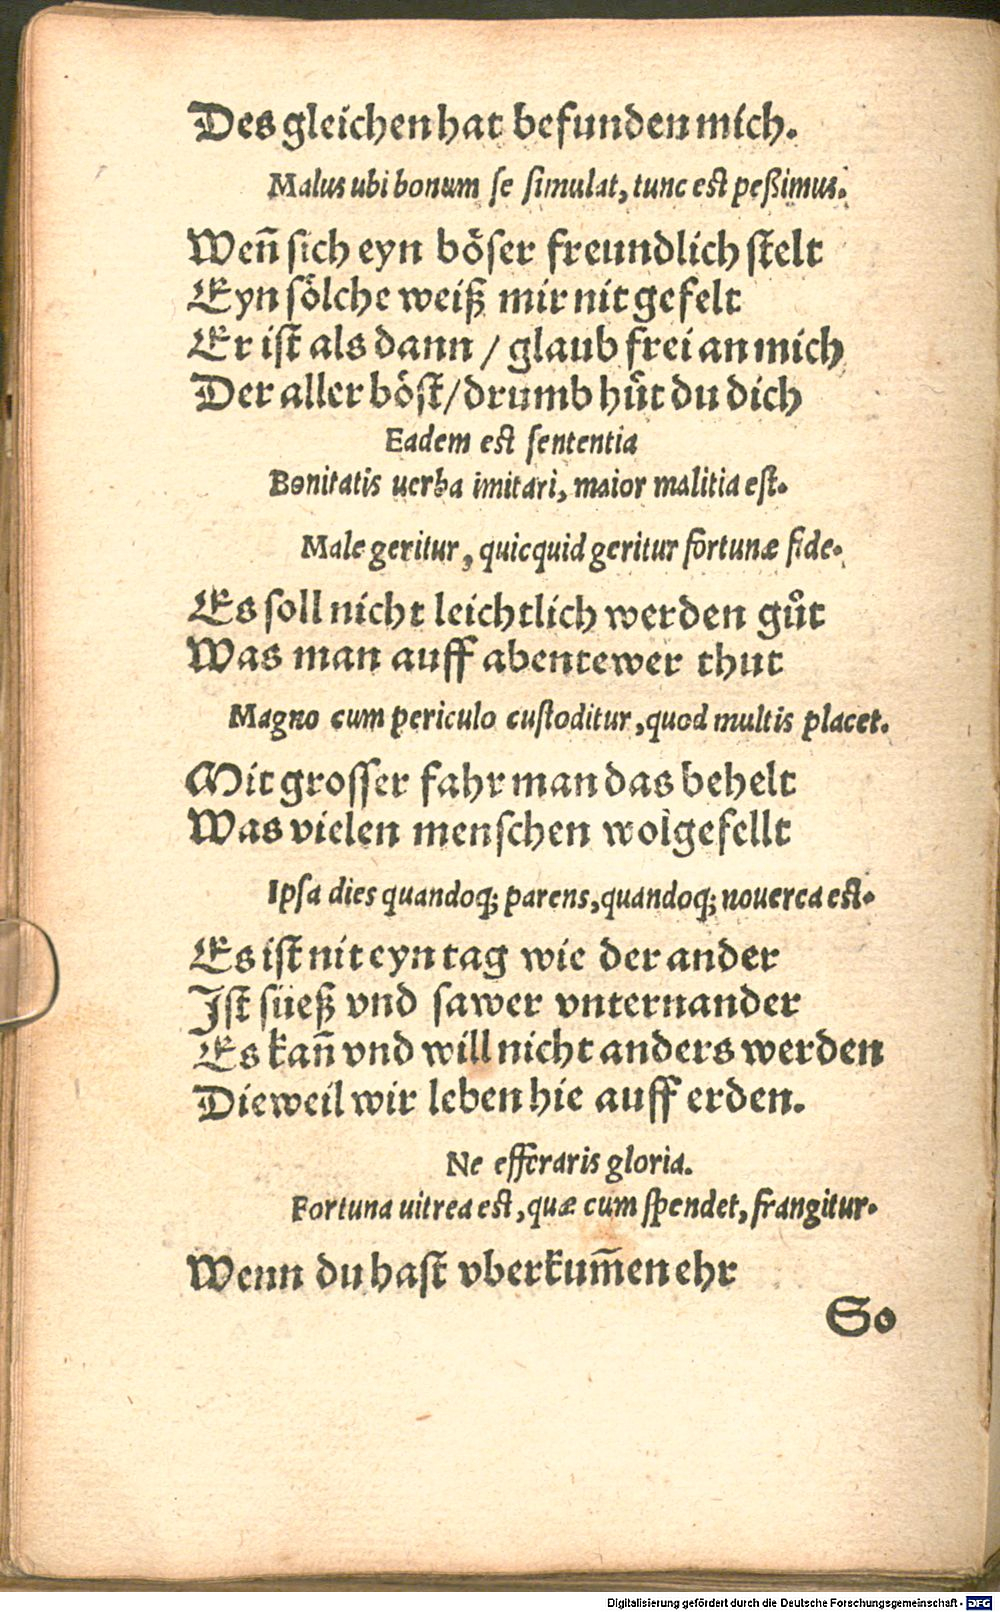 Des gleichen hat befunden mich.
Malus ubi bonum se simulat, tunc est peßimus.
Wen̄ sich eyn böser freundlich stelt
Eyn sölche weiß mir nit gefelt
Er ist als dann / glaub frei an mich
Der aller böst / drumb huͤt du dich
Eadem est sententia
Bonitatis uerba imitari, maior malitia est.
Male geritur, quicquid geritur fortunæ fide.
Es soll nicht leichtlich werden guͦt
Was man auff abentewer thut
Magno cum periculo custoditur, quod multis placet.
Mit grosser fahr man das behelt
Was vielen menschen wolgefellt
Ipsa dies quandoq; parens, quandoq; nouerca est.
Es ist nit eyn tag wie der ander
Ist süeß vnd sawer vnternander
Es kan̄ vnd will nicht anders werden
Dieweil wir leben hie auff erden.
Ne efferaris gloria.
Fortuna uitrea est, quæ cum spendet, frangitur.
Wenn du hast vberkum̄en ehr
So
Digitalisierung gefördert durch die Deutsche Forschungsgemeinschaft - DFG